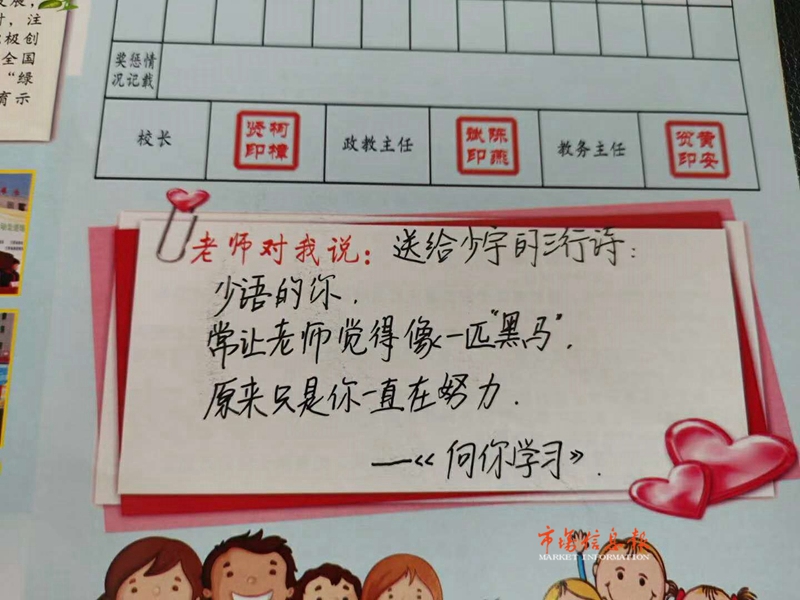 发展,
时,注
极创
全国
“绿
育示
奖惩情
况记载
校长
贤柯
印樟
政教主任
斌陈
印燕
教务主任
贺黄
印安
老师对我说:送给少宇的三行诗:
少语的你,
常让老师觉得像一匹“黑马”,
原来只是你一直在努力.
—《向你学习》.
市场信息报
MARKET INFORMATION